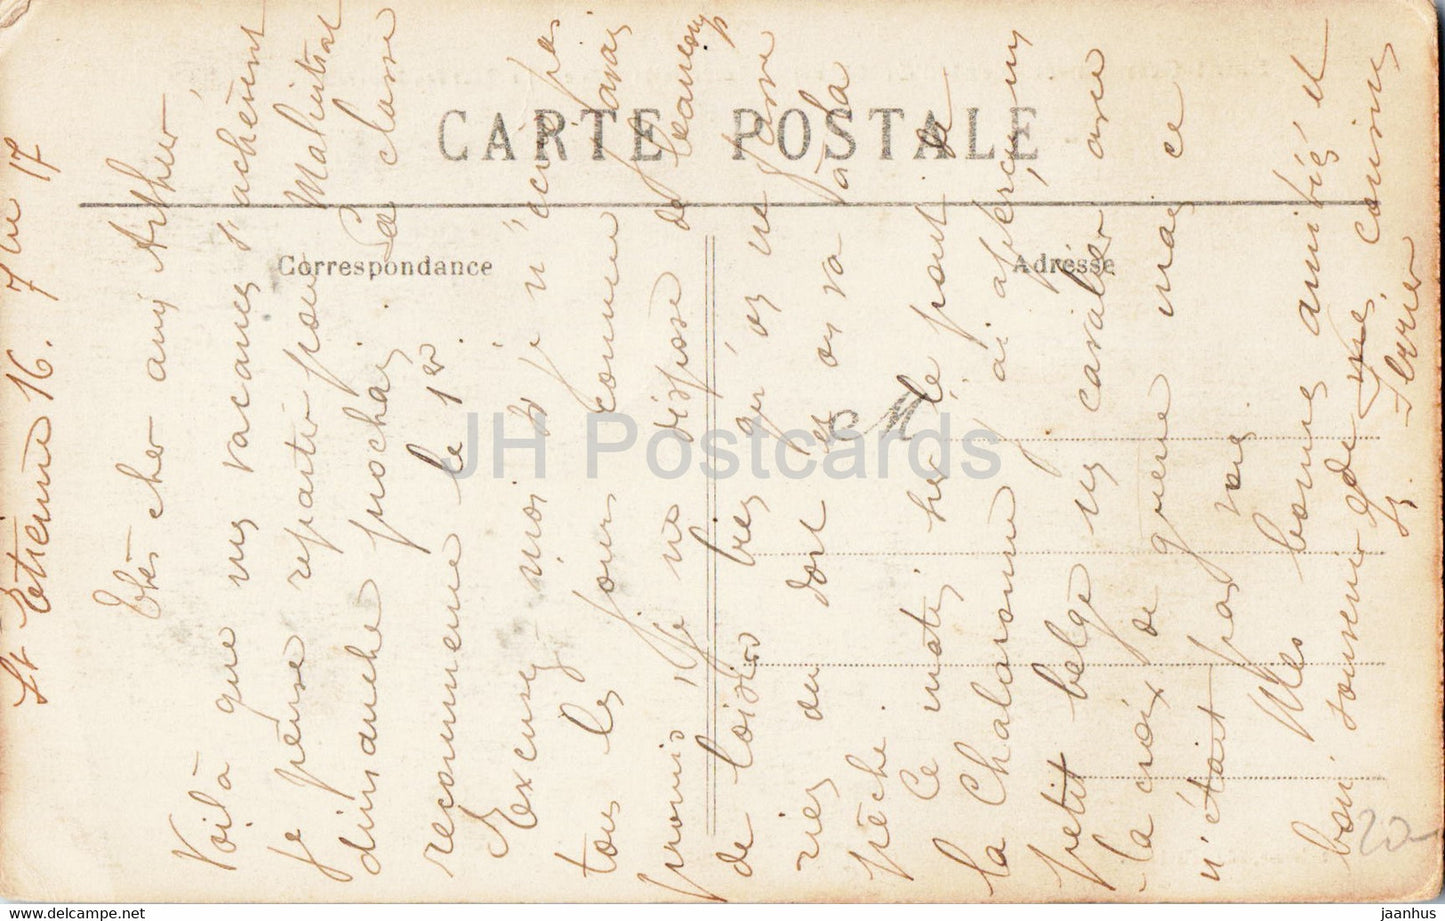 CARTE POSTALE
Correspondance
Adresse
St Etienne 16. 7bre 17
Très cher ami Arthur
Voilà que mes vacances s'achèvent
Je pense repartir pour
dimanche prochain. La classe
recommence le 1er.
Excusez-moi si je n'écris pas
tous les jours comme
promis. Je ne dispose de beaucoup
de loisirs bien qu'on ne
rien ou dort et on va à la
pêche.
Ce matin sur le pont de
la Chalaronne j'ai aperçu un
petit belge un cavalier avec
la croix de guerre mais ce
n'était pas vous
Mes bonnes amitiés et
bon souvenir de
JH Postcards
20-
jaanhus.com
jaanhus